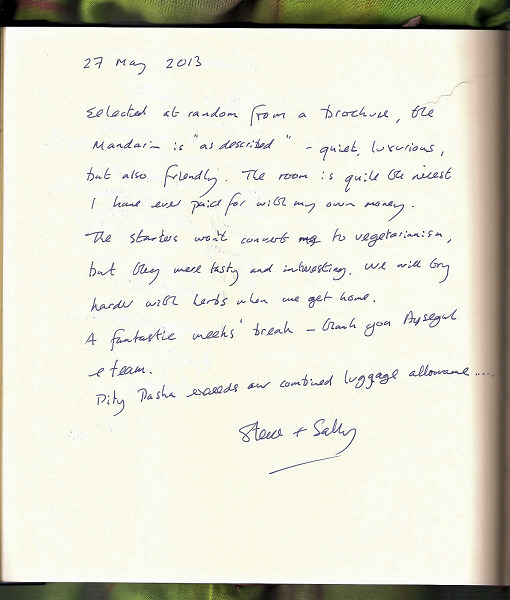 27 May 2013
Selected at random from a brochure, the
Mandarin is "as described" - quiet, luxurious,
but also friendly. The room is quite the nicest
I have ever paid for with my own money.
The starters won't convert me to vegetarianism,
but they were tasty and interesting. We will try
harder with herbs when we get home.
A fantastic weeks' break - thank you Aysegul
& team.
Pity Pasha exceeds our combined luggage allowance.....
Steve + Sally